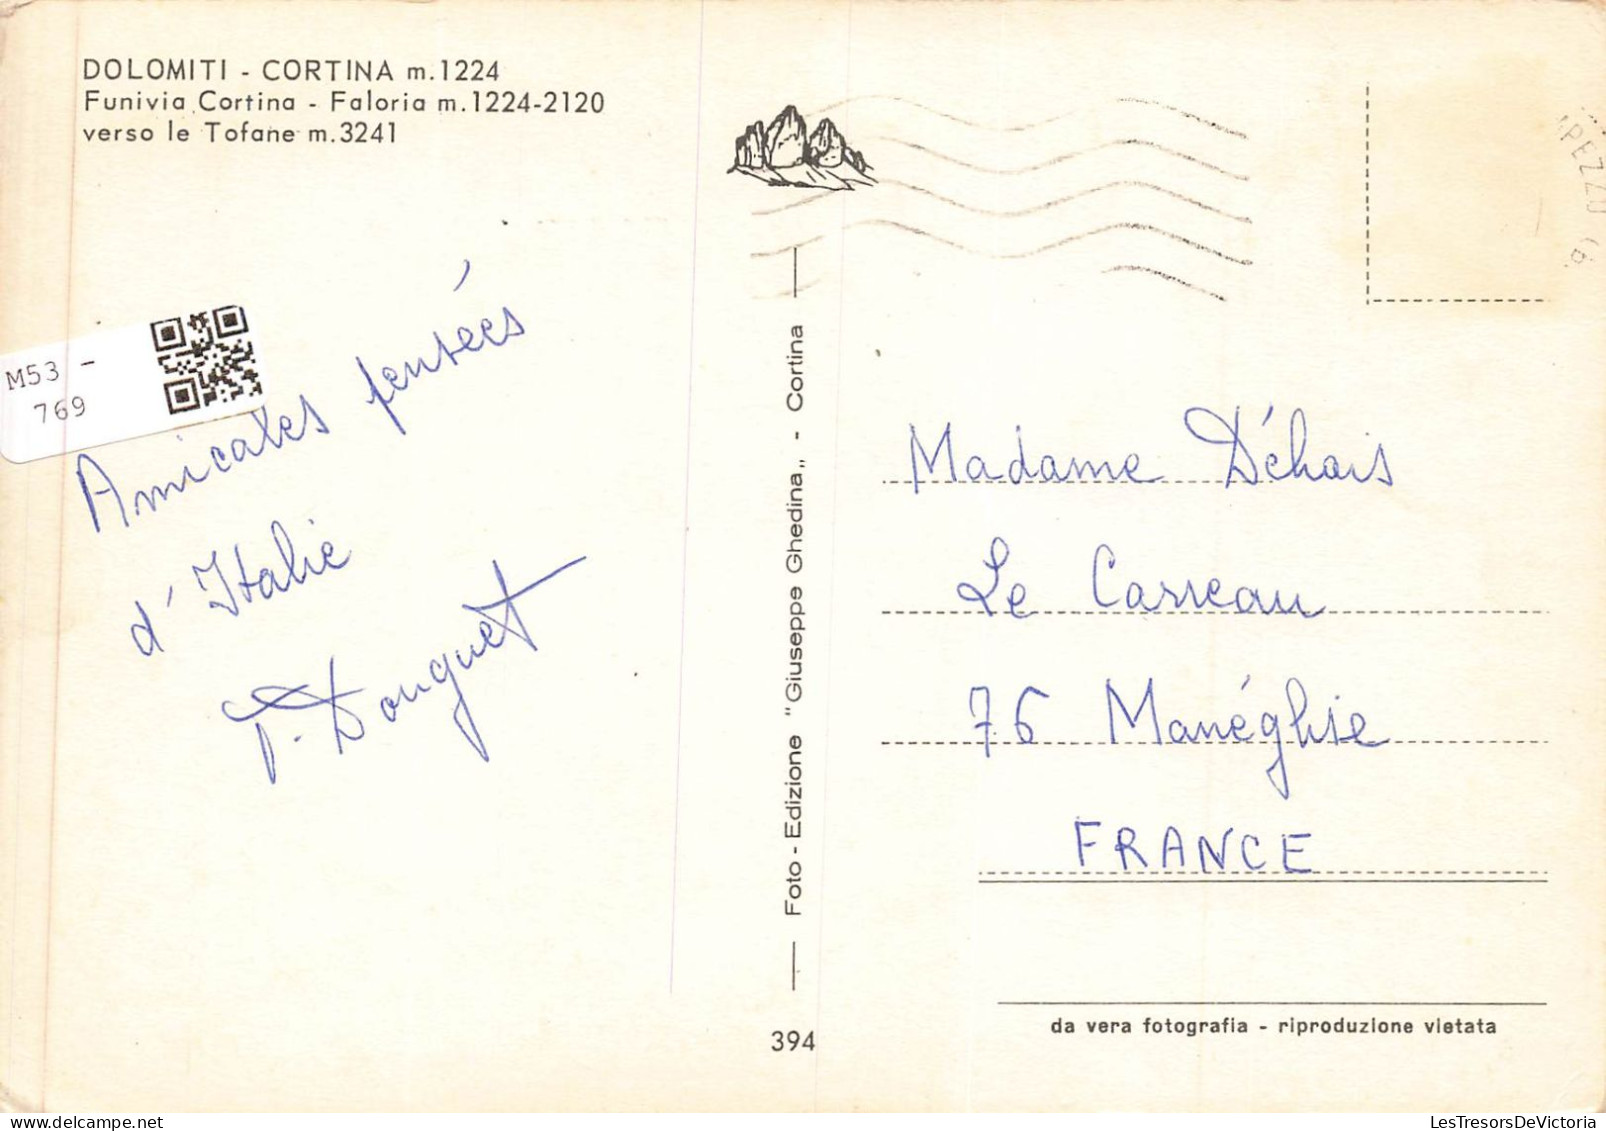 DOLOMITI - CORTINA m.1224
Funivia Cortina - Faloria m.1224-2120
verso le Tofane m.3241
M53 -
769
Amicales pensées
d'Italie
Douguet
Foto - Edizione "Giuseppe Ghedina„ - Cortina
394
Madame Déhais
Le Carreau
76 Manéglise
FRANCE
da vera fotografia - riproduzione vietata
LesTresorsDeVictoria